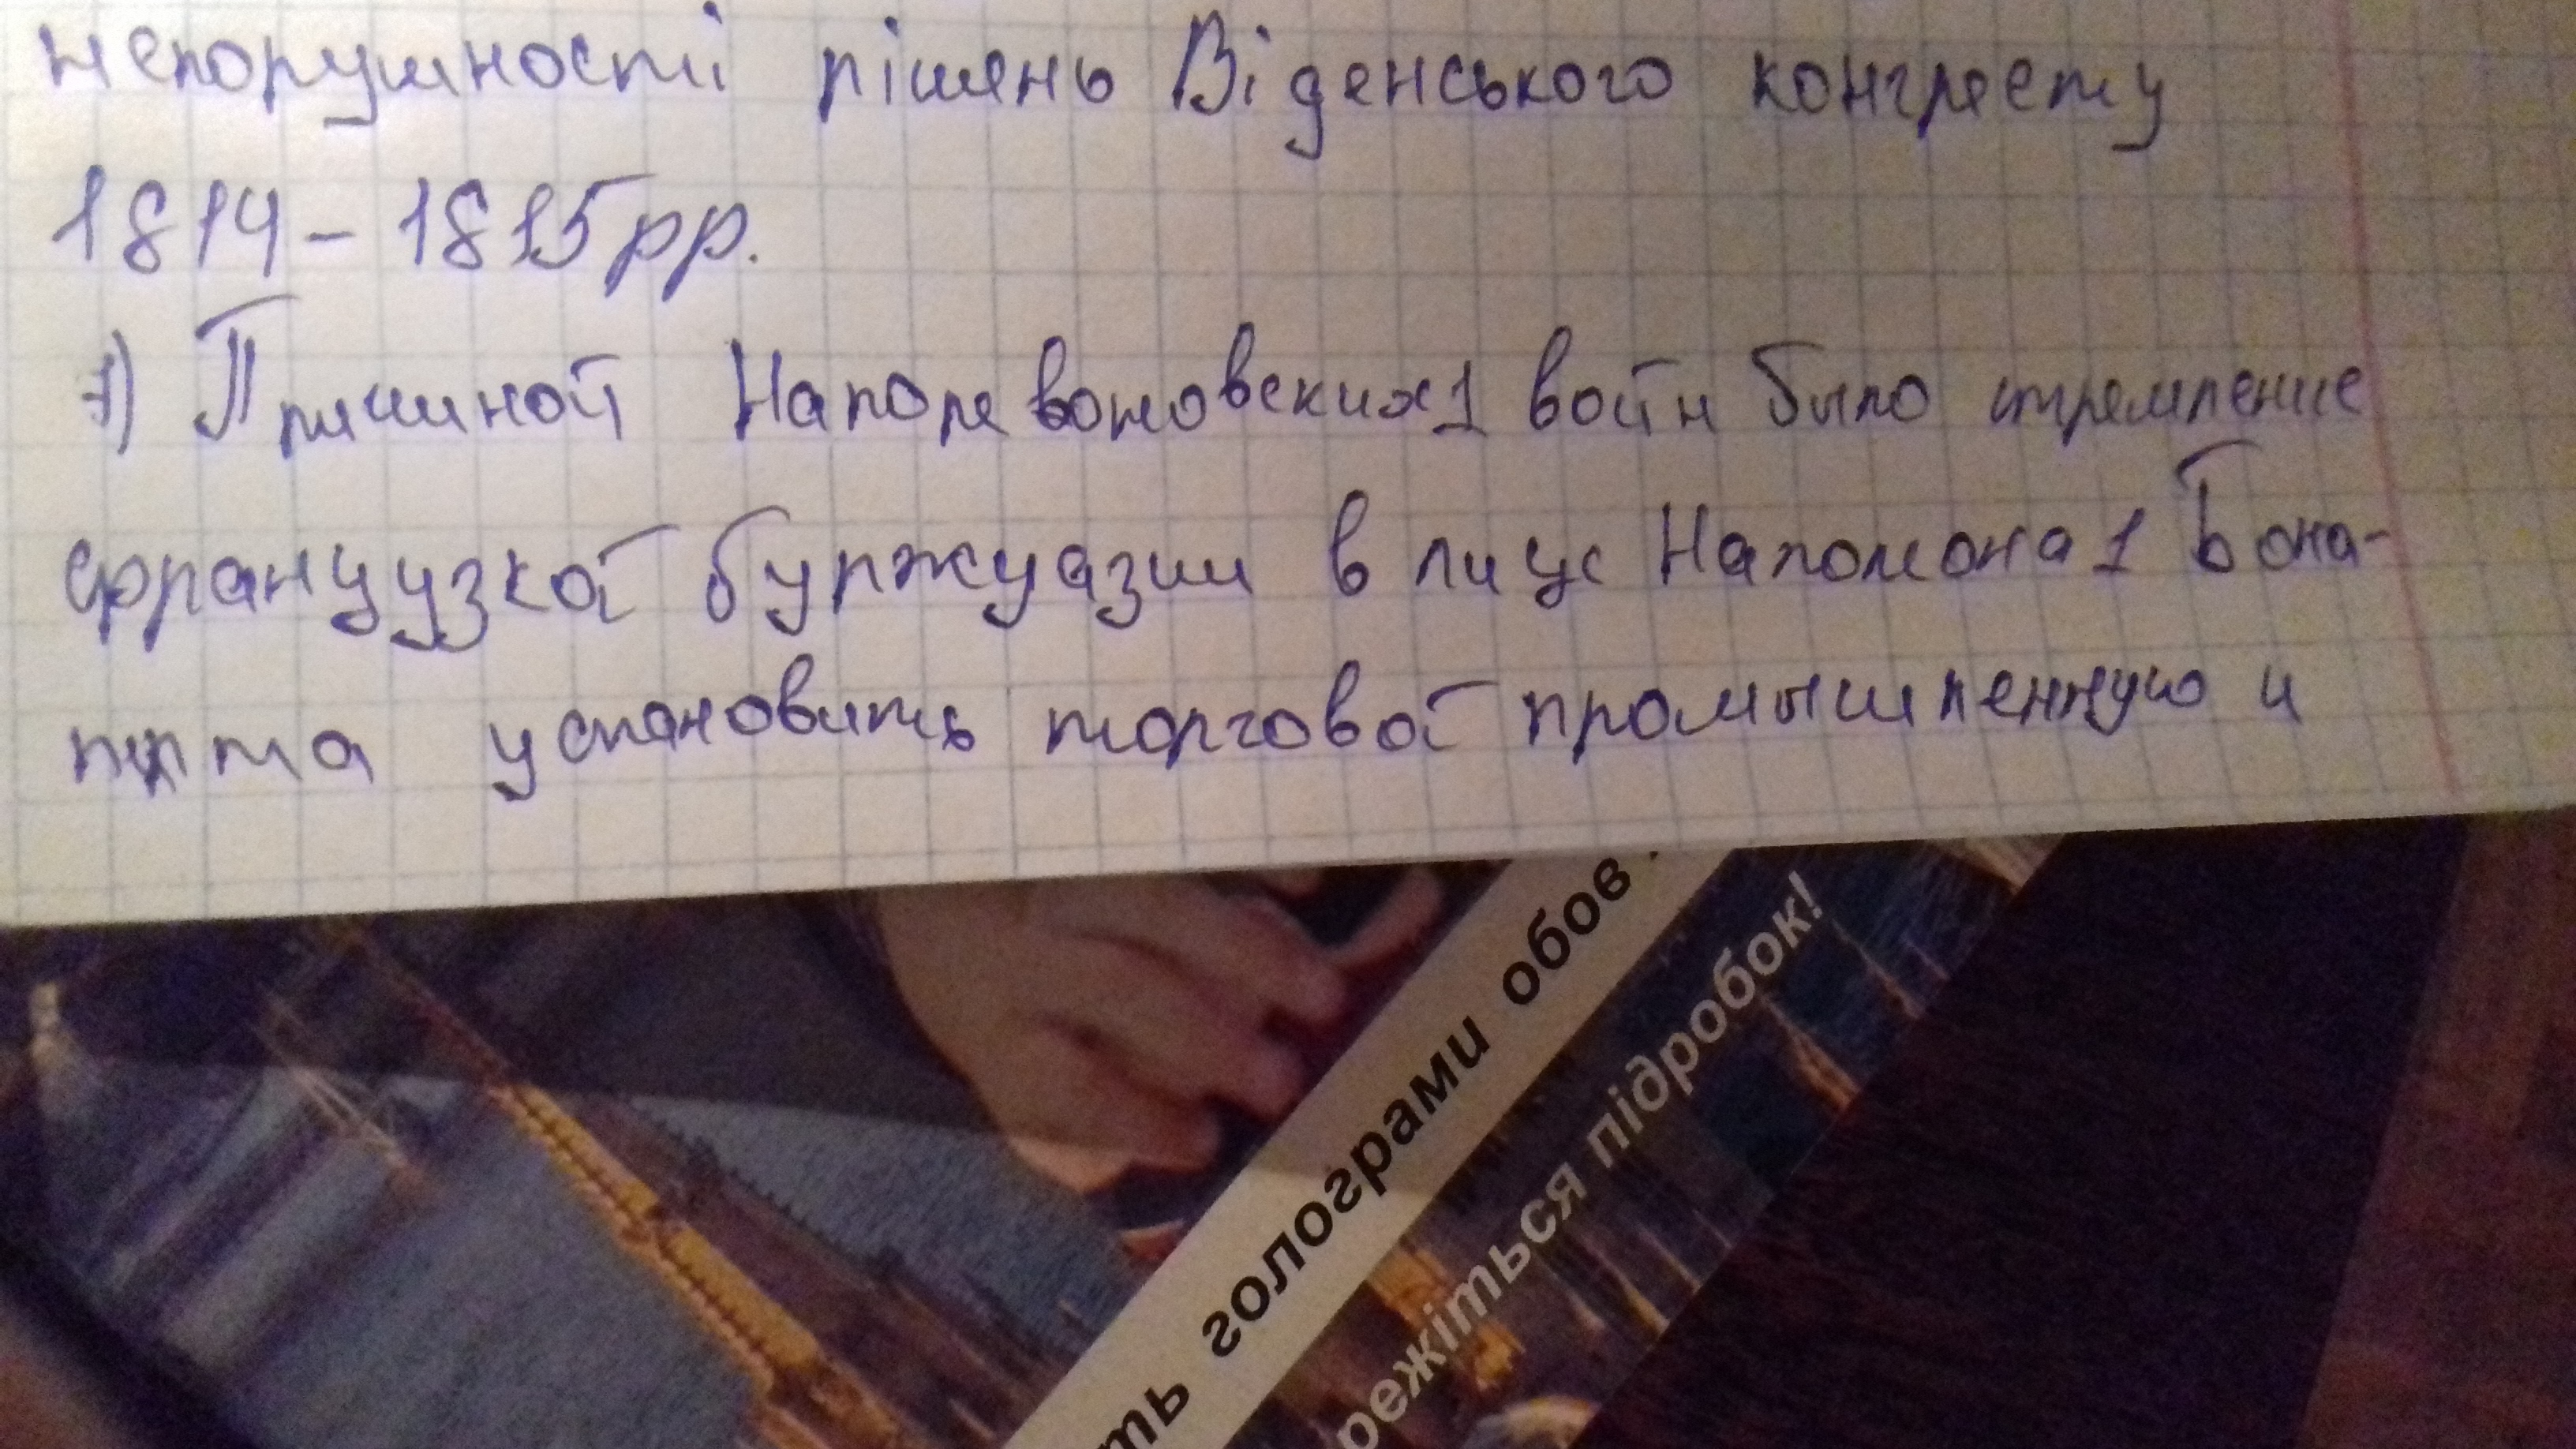 непорушності рішень Віденського конгресту
1814-1815рр.
1) Причиной Наполевоновских1 войн было стремление
французкой буржуазии в лице Наполеона 1 Бона-
парта установить торговой промышленную и
ть голограми обов
режіться підробок!